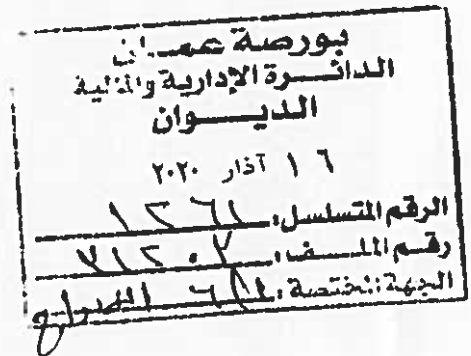 بورصة عمان
الدائرة الإدارية والمالية
الديوان
١٦ آذار ٢٠٢٠
الرقم المتسلسل:
رقم الملف:
الجهة المختصة: